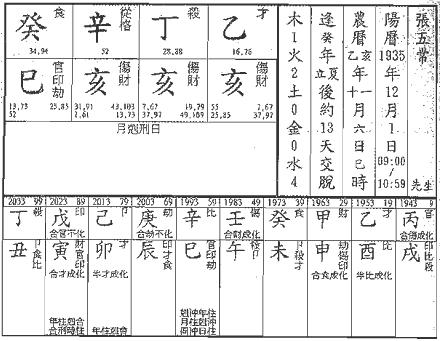 張五常
先生
陽曆1935年12月1日09:00/10:59
農曆乙亥年十一月六日巳時
逢癸年立夏後約13天交脫
木1火2土0金0水4
癸 食
34,94
辛 從格
52
丁 殺
28,88
乙 才
16,76
巳 官印劫
13,73 25,85
52
亥 傷財
31,91 43,103
2,61 13,73
亥 傷財
7,67 19,79
37,97 49,109
亥 傷財
55 2,67
25,85 37,97
月剋刑日
2033 99
丁 殺
丑 卩食比
2023 89
戊 印
合官不化
寅 財官印
合才成化
年柱剋合
合刑時柱
2013 79
己 卩
卯 才
半才成化
年柱剋會
2003 69
庚 劫
合劫不化
辰 印才食
1993 59
辛 比
巳 官印劫
剋沖年柱
月柱剋沖
例沖日柱
1983 49
壬 傷
合財成化
午 殺卩
1973 39
癸 食
未 卩殺才
1963 29
甲 財
申 劫傷印
合食成化
1953 19
乙 才
酉 比
半比成化
1943 9
丙 官
合傷成化
戌 印比殺